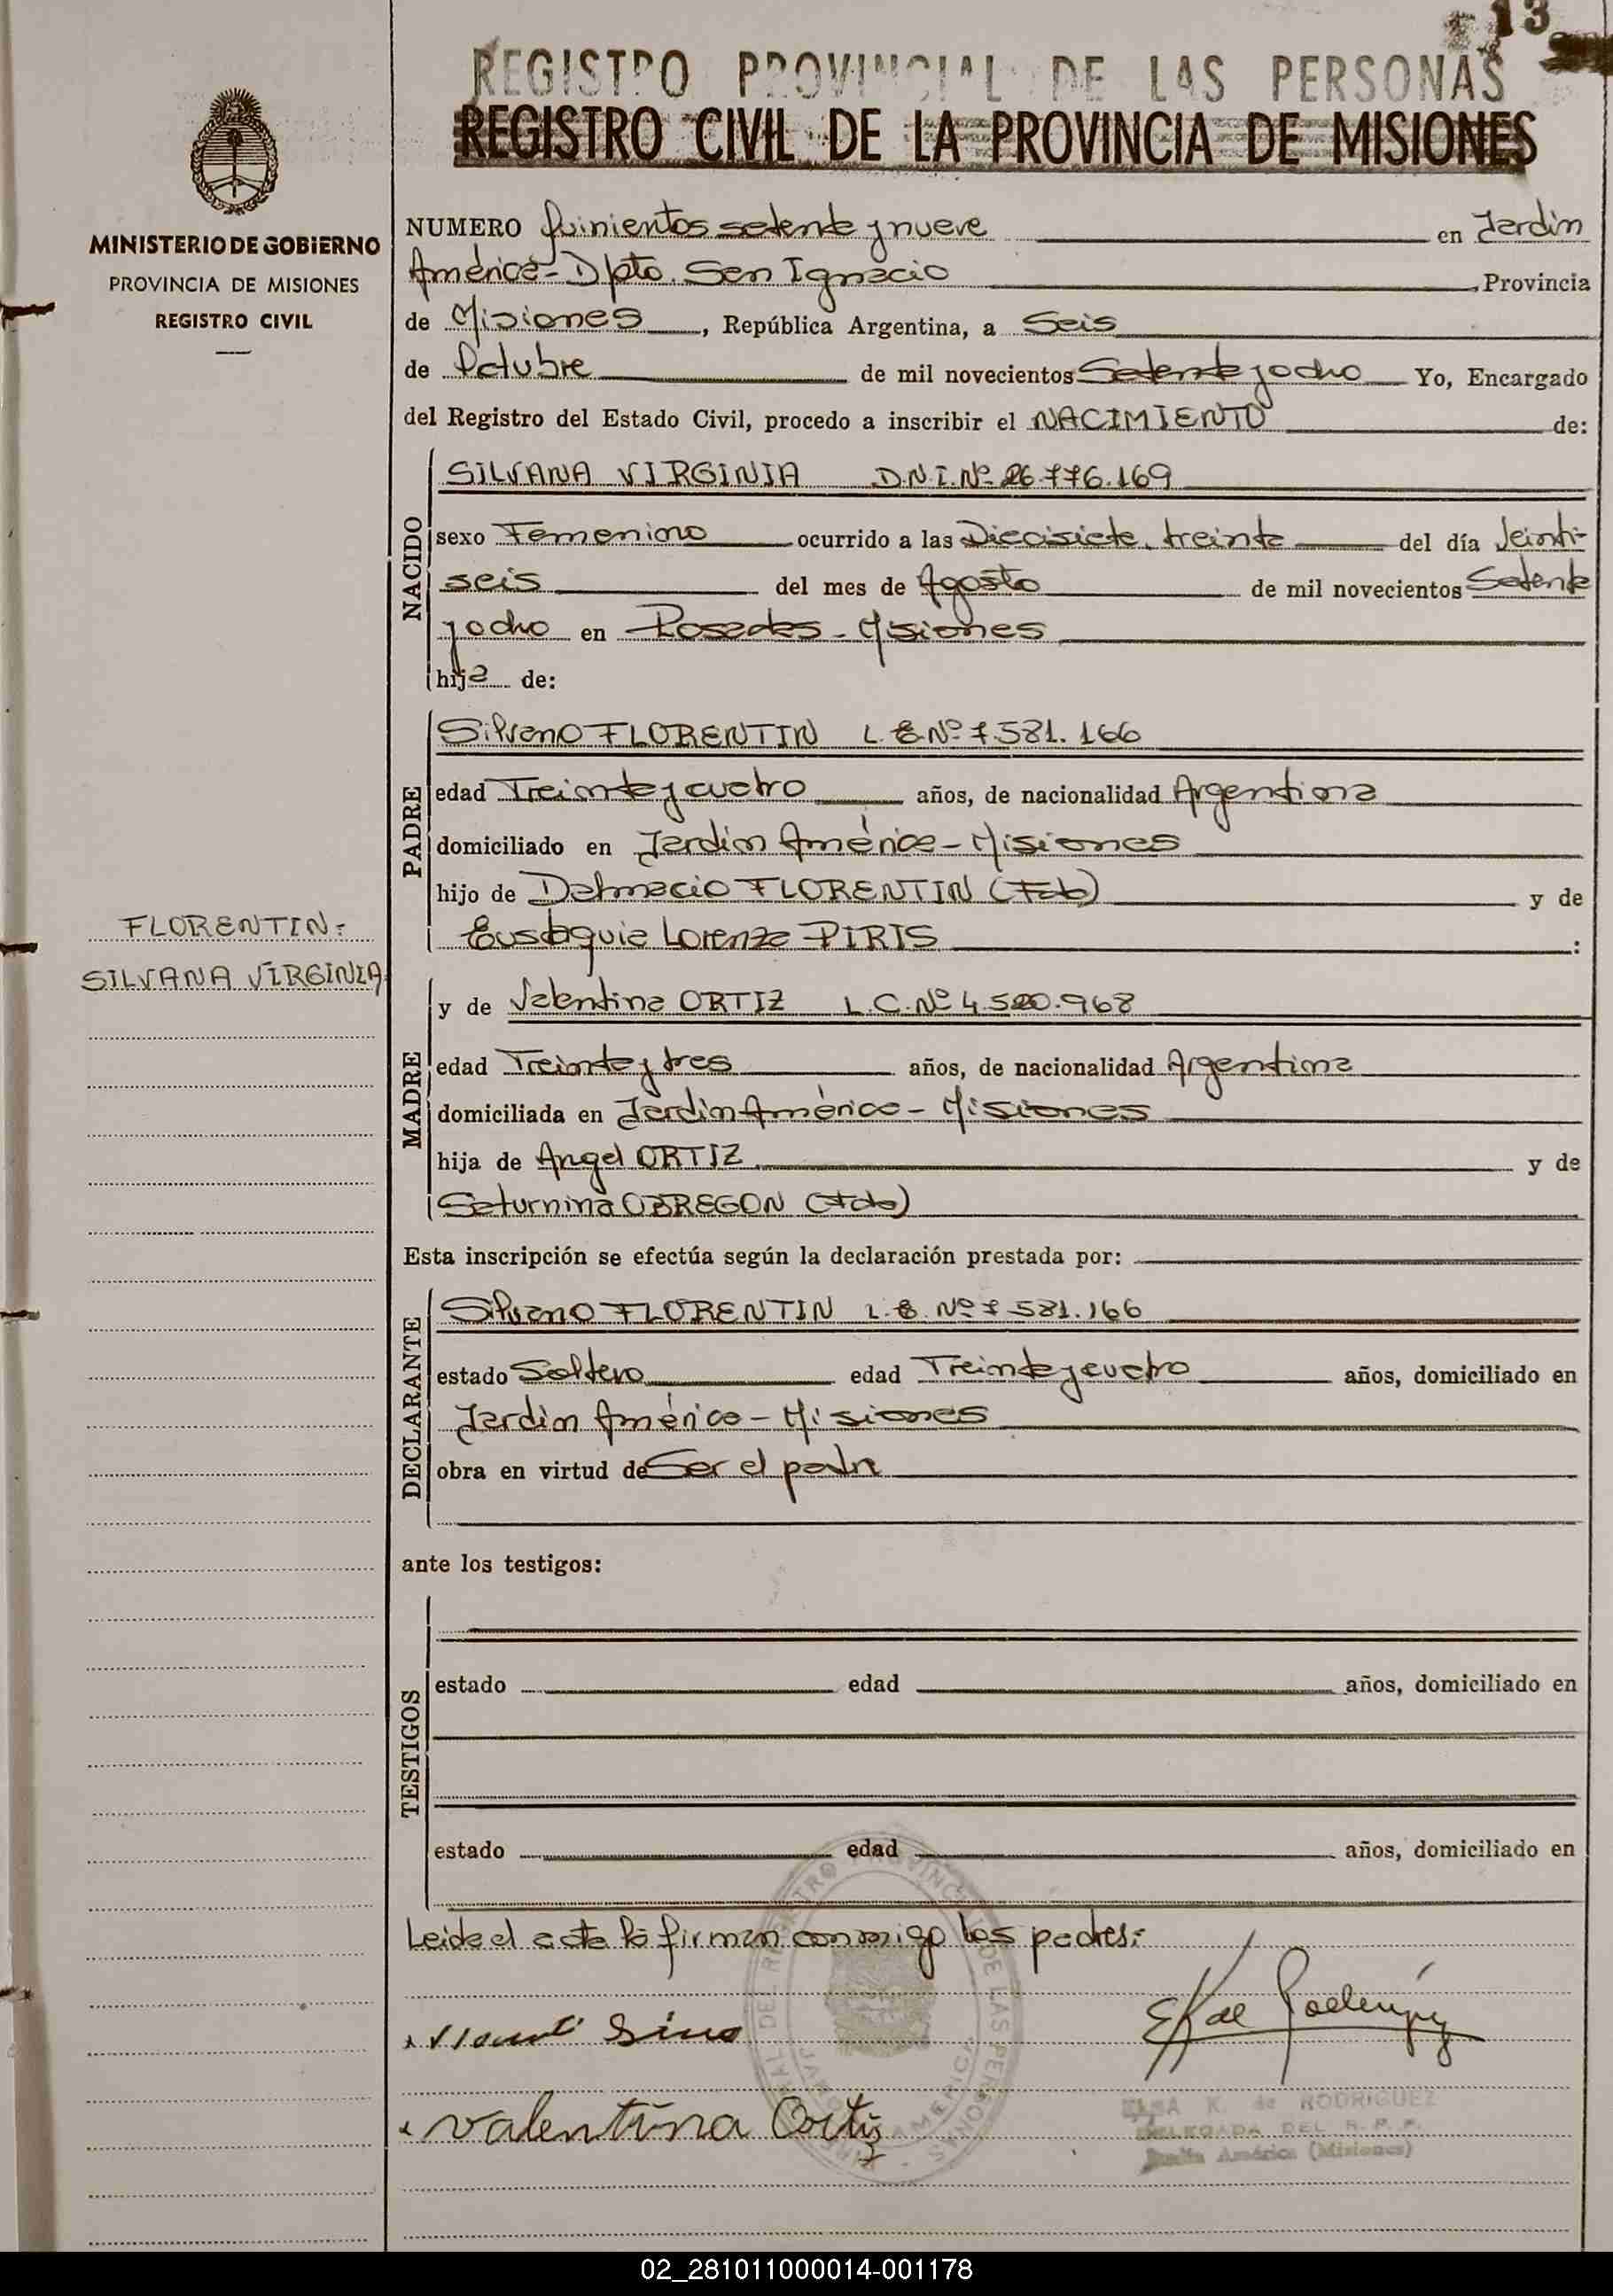 13
REGISTRO PROVINCIAL DE LAS PERSONAS
REGISTRO CIVIL DE LA PROVINCIA DE MISIONES
MINISTERIO DE GOBIERNO
PROVINCIA DE MISIONES
REGISTRO CIVIL
NUMERO Quinientos setenta y nueve en Jardin
América - Dpto. San Ignacio, Provincia
de Misiones, República Argentina, a Seis
de Octubre de mil novecientos Setenta y ocho Yo, Encargado
del Registro del Estado Civil, procedo a inscribir el NACIMIENTO de:
NACIDO
SILVANA VIRGINIA D.N.I. Nº 26.776.169
sexo Femenino ocurrido a las Diecisiete, treinta del día Veinti-
seis del mes de Agosto de mil novecientos Setenta
y ocho en Posadas - Misiones
hija de:
PADRE
Silvano FLORENTIN L.E. Nº 7.581.166
edad Treinta y cuatro años, de nacionalidad Argentina
domiciliado en Jardin América - Misiones
hijo de Dalmacio FLORENTIN (Fdo) y de
Eustaquia Lorenza PIRIS :
FLORENTIN:
SILVANA VIRGINIA
MADRE
y de Valentina ORTIZ L.C. Nº 4.520.968
edad Treinta y tres años, de nacionalidad Argentina
domiciliada en Jardin América - Misiones
hija de Angel ORTIZ y de
Saturnina OBREGON (Fda)
Esta inscripción se efectúa según la declaración prestada por:
DECLARANTE
Silvano FLORENTIN L.E. Nº 7.581.166
estado Soltero edad Treinta y cuatro años, domiciliado en
Jardin América - Misiones
obra en virtud de Ser el padre
ante los testigos:
TESTIGOS
estado edad años, domiciliado en
estado edad años, domiciliado en
Leida el acta la firman conmigo los padres:
Valentina Ortiz
ELSA K. de RODRIGUEZ
DELEGADA DEL R.P.P.
Jardín América (Misiones)
02_281011000014-001178